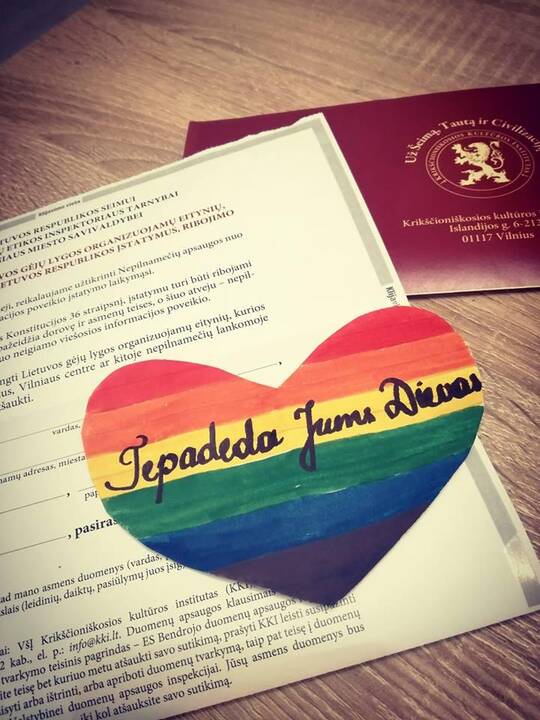 Už Šeimą, Tautą ir Civilizaciją
KRIKŠČIONIŠKOSIOS KULTŪROS INSTITUTAS
Krikščioniškosios kultūros
Islandijos g. 6-212
01117 Vilnius
Klijavimo vieta
LIETUVOS RESPUBLIKOS SEIMUI
ETIKOS INSPEKTORIAUS TARNYBAI
VILNIAUS MIESTO SAVIVALDYBEI
GĖJŲ LYGOS ORGANIZUOJAMŲ EITYNIŲ,
LIETUVOS RESPUBLIKOS ĮSTATYMUS, RIBOJIMO
reikalaujame užtikrinti Nepilnamečių apsaugos nuo
poveikio įstatymo laikymąsi.
Konstitucijos 36 straipsnį, įstatymu turi būti ribojami
pažeidžia dorovę ir asmenų teises, o šiuo atveju – nepil-
nuo neigiamo viešosios informacijos poveikio.
Lietuvos gėjų lygos organizuojamų eitynių, kurios
Vilniaus centre ar kitoje nepilnamečių lankomoje
vardas,
namų adresas, miesta
pap
, pasiraš
Tepadeda Jums Dievas
ad mano asmens duomenys (vardas,
(leidinių, daiktų, pasiūlymų juos įsigy
VšĮ Krikščioniškosios kultūros institutas (KKI
2 kab., el. p.: info@kki.lt. Duomenų apsaugos klausimais
tvarkymo teisinis pagrindas – ES Bendrojo duomenų apsaugos
teisę bet kuriuo metu atšaukti savo sutikimą, prašyti KKI leisti susipažinti
ar ištrinti, arba apriboti duomenų tvarkymą, taip pat teisę į duomenų
Valstybinei duomenų apsaugos inspekcijai. Jūsų asmens duomenys bus
iki kol atšauksite savo sutikimą.